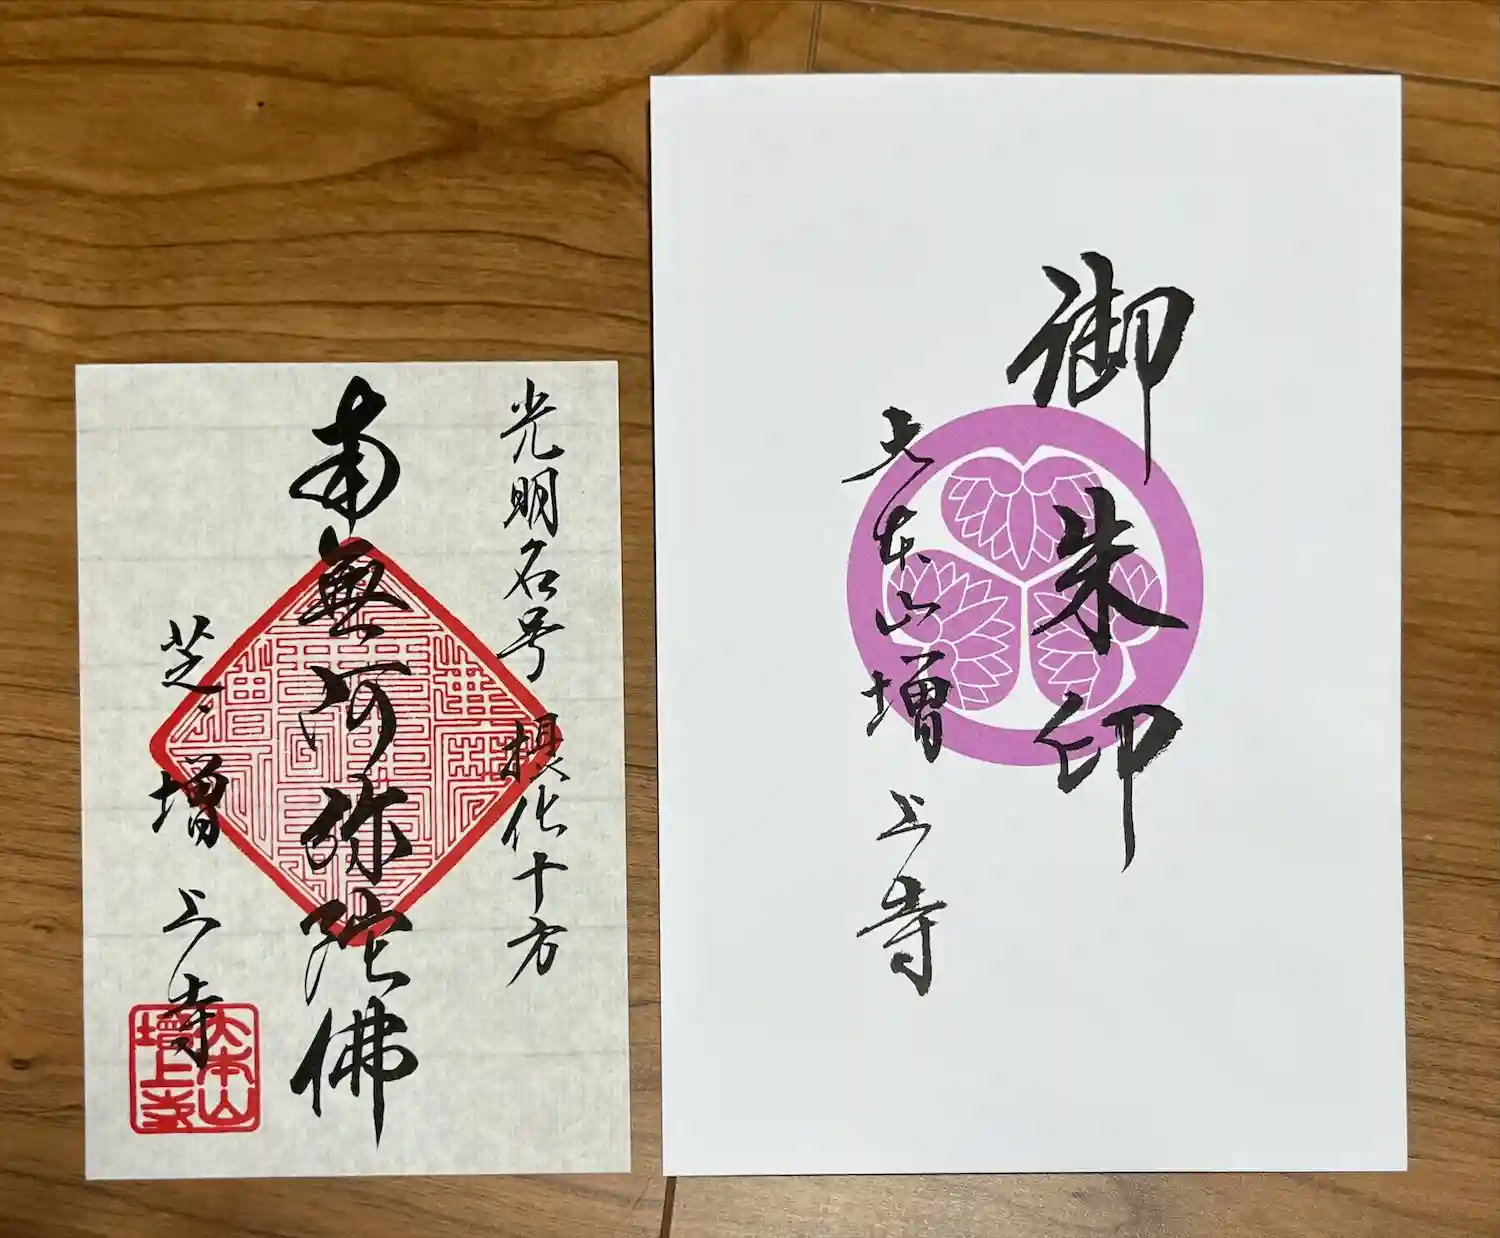 御朱印
大本山増上寺
光明名号 摂化十方
南無阿弥陀佛
芝 増上寺
大本山
増上寺